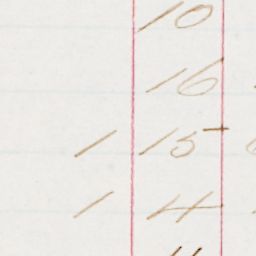 10
16
1 15
1 4